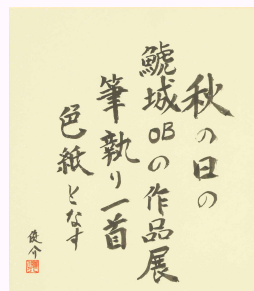 秋の日の
鯱城OBの作品展
筆執り一首
色紙となす
俊介